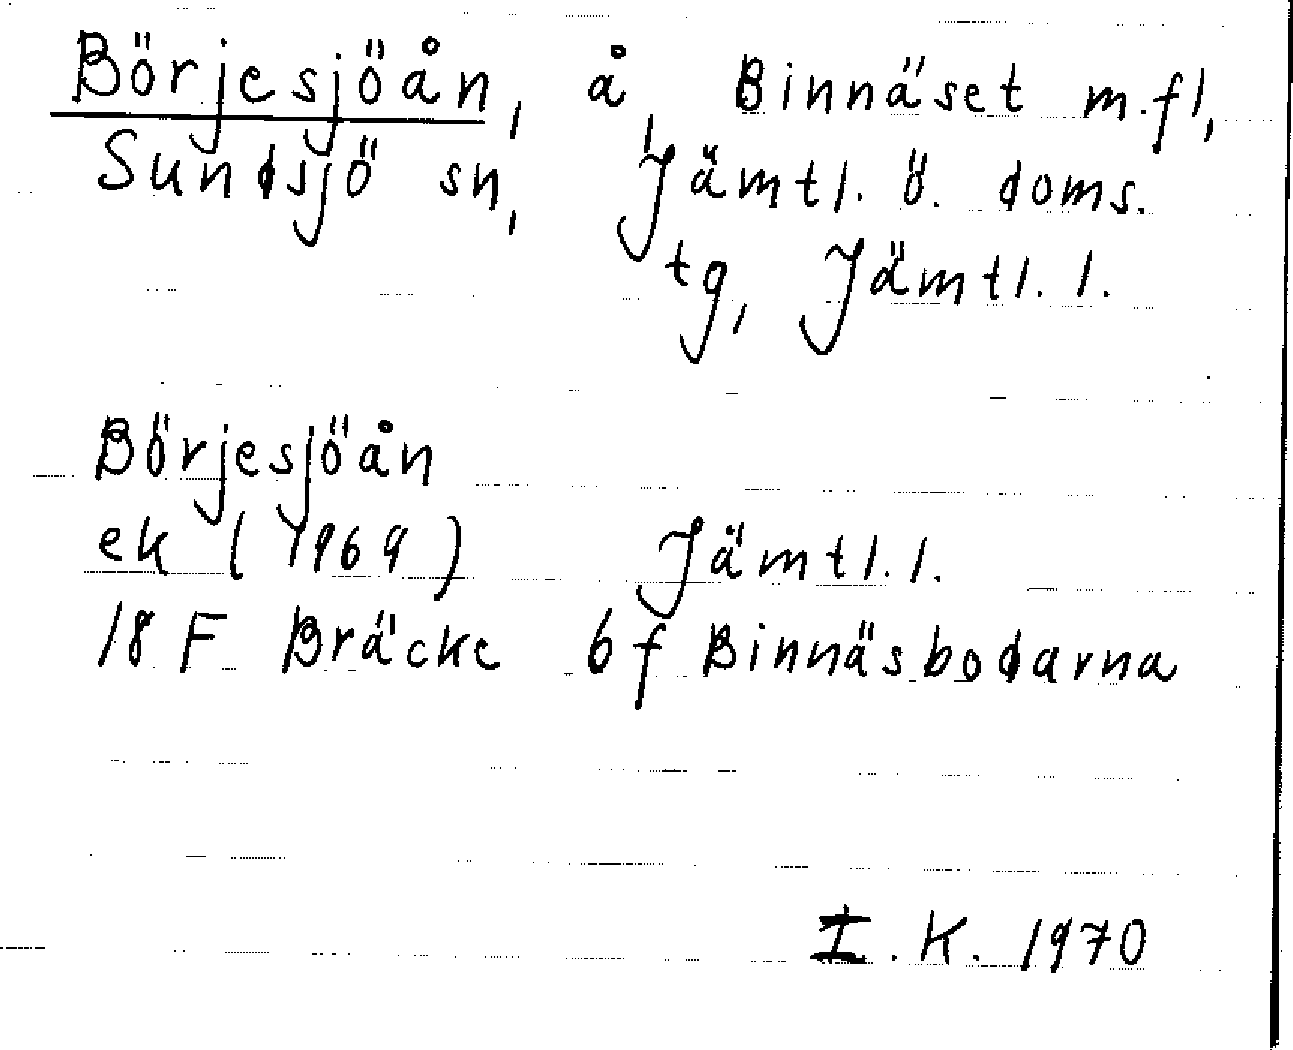 Börjesjöån, å, Binnäset m.fl,
Sundsjö sn, Jämtl. ö. doms.
tg, Jämtl. l.
Börjesjöån
ek (1969) Jämtl. l.
18 F Bräcke 6 f Binnäsbodarna
I. K. 1970